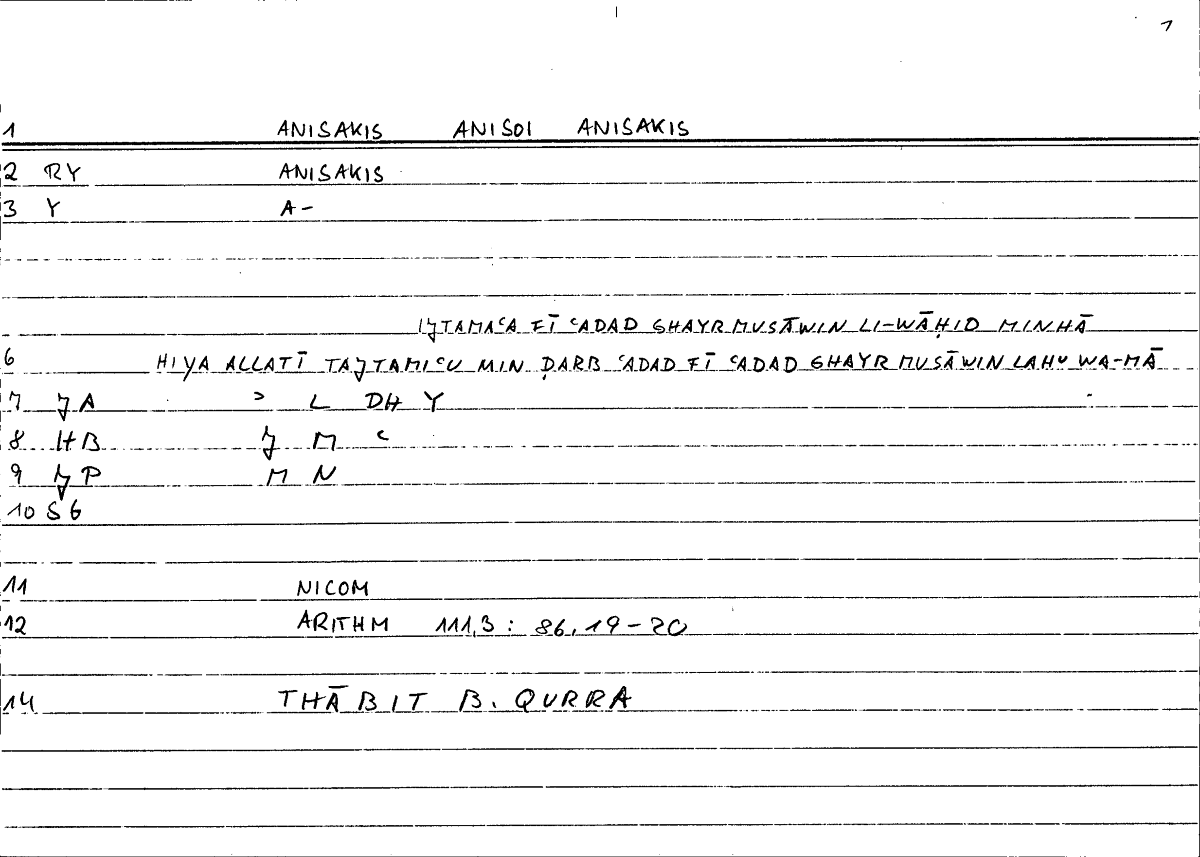 1
1 ANISAKIS ANISOI ANISAKIS
2 RY ANISAKIS
3 Y A-
IJTAMAʿA FĪ ʿADAD GHAYR MUSĀWIN LI-WĀḤID MINHĀ
6 HIYA ALLATĪ TAJTAMIʿU MIN ḌARB ʿADAD FĪ ʿADAD GHAYR MUSĀWIN LAHU WA-MĀ
7 JA ʾ L DH Y
8 HB J M ʿ
9 JP M N
10 SG
11 NICOM
12 ARITHM 111,3 : 86,19-20
14 THĀBIT B. QURRA